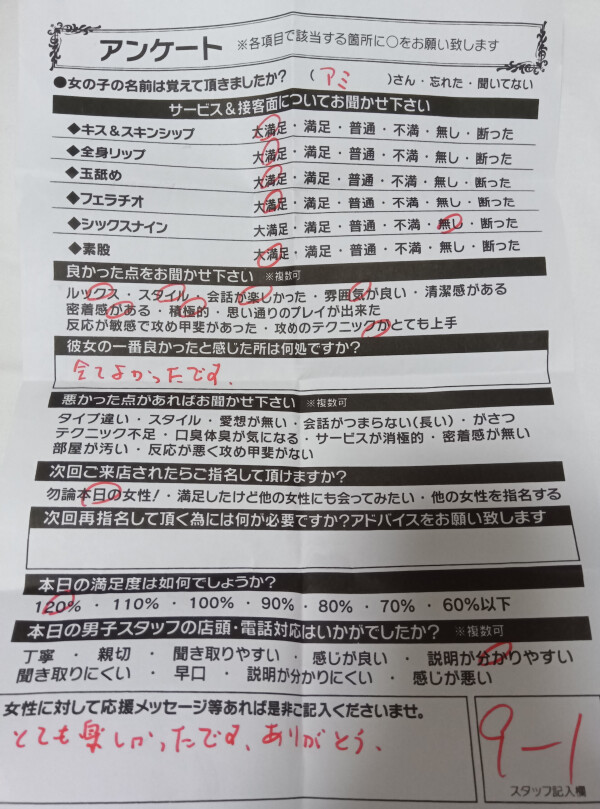 アンケート ※各項目で該当する箇所に○をお願い致します
●女の子の名前は覚えて頂きましたか? (アミ)さん・忘れた・聞いてない
サービス&接客面についてお聞かせ下さい
◆キス&スキンシップ 大満足・満足・普通・不満・無し・断った
◆全身リップ 大満足・満足・普通・不満・無し・断った
◆玉舐め 大満足・満足・普通・不満・無し・断った
◆フェラチオ 大満足・満足・普通・不満・無し・断った
◆シックスナイン 大満足・満足・普通・不満・無し・断った
◆素股 大満足・満足・普通・不満・無し・断った
良かった点をお聞かせ下さい ※複数可
ルックス・スタイル・会話が楽しかった・雰囲気が良い・清潔感がある
密着感がある・積極的・思い通りのプレイが出来た
反応が敏感で攻め甲斐があった・攻めのテクニックがとても上手
彼女の一番良かったと感じた所は何処ですか?
全てよかったです.
悪かった点があればお聞かせ下さい ※複数可
タイプ違い・スタイル・愛想が無い・会話がつまらない(長い)・がさつ
テクニック不足・口臭体臭が気になる・サービスが消極的・密着感が無い
部屋が汚い・反応が悪く攻め甲斐がない
次回ご来店されたらご指名して頂けますか?
勿論本日の女性!・満足したけど他の女性にも会ってみたい・他の女性を指名する
次回再指名して頂く為には何が必要ですか?アドバイスをお願い致します
本日の満足度は如何でしょうか?
120%・110%・100%・90%・80%・70%・60%以下
本日の男子スタッフの店頭・電話対応はいかがでしたか? ※複数可
丁寧・親切・聞き取りやすい・感じが良い・説明が分かりやすい
聞き取りにくい・早口・説明が分かりにくい・感じが悪い
女性に対して応援メッセージ等あれば是非ご記入くださいませ。
とても楽しかったです、ありがとう、
9-1
スタッフ記入欄